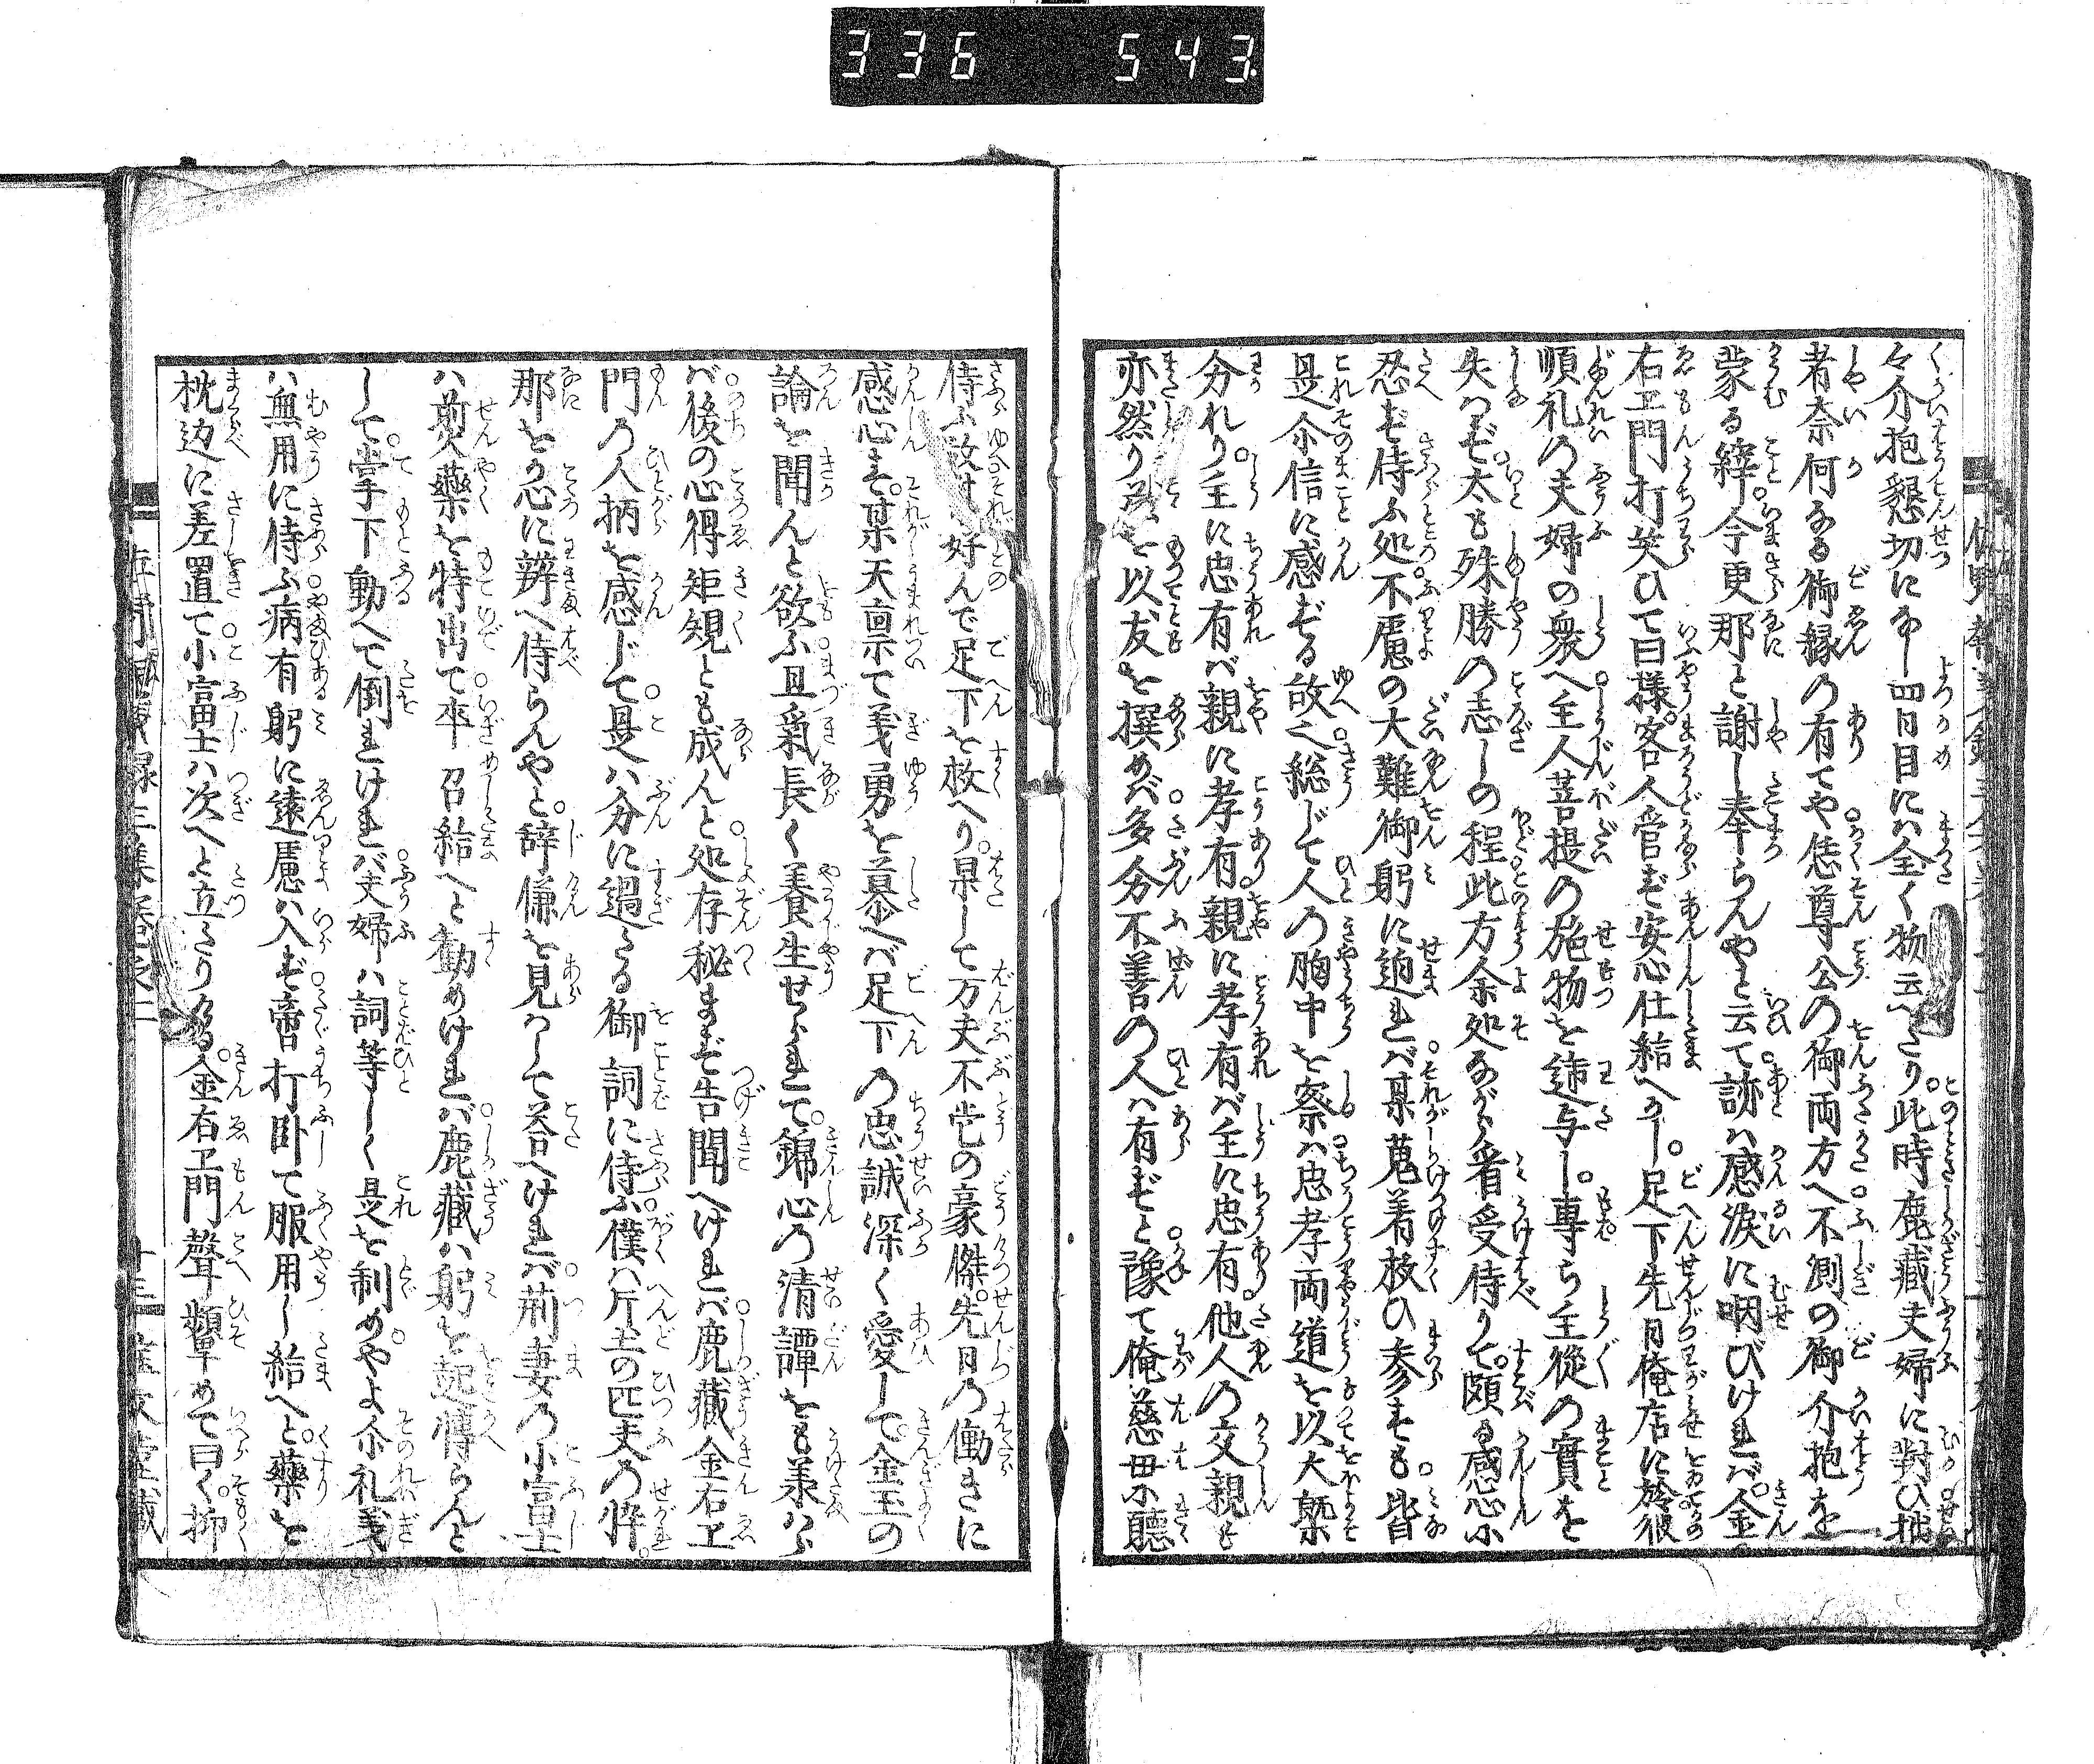 336 543
々介抱懇切になし四日目にハ全く物云へたり。此時鹿藏夫婦に對ひ拙
者奈何なる御縁の有てや恁尊公の御両方へ不測の御介抱を
蒙る縡今更那と謝し奉らんやと云て跡ハ感涙に咽びけれバ。金
右エ門打笑ひて曰様。客人管ず安心仕給へかし。足下先日俺店に於彼
順礼の夫婦の衆へ主人菩提の施物を遞与し。専ら主從の實を
失ハず。太も殊勝の志しの程此方余処ながら看受侍りて。頗る感心に
忍ず侍ふ処不慮の大難御躬に迫れバ某蒐着救ひ参すも皆
是尒信に感ずる故也総じて人の胸中を察ハ忠孝両道を以大槩
分れり。主に忠有バ親に孝有。親に孝有バ主に忠有。他人の交親も
亦然り を以友を撰めバ多分不善の人ハ有ずと豫て俺慈母に聽
侍ふ故 好んで足下を救へり。果して万夫不当の豪傑。先日の働きに
感心す。某天稟て義勇を慕へバ足下の忠誠深く愛して。金玉の
論を聞んと欲ふ且氣長く養生せられて。錦心の清譚をも羕ハら
バ後の心得矩規とも成んと処存秘まず告聞へけれバ鹿藏金右エ
門の人柄を感じて。是ハ分に過たる御詞に侍ふ。僕ハ片土の匹夫の悴。
那を心に辨へ侍らんやと。辞儀を見ハして答へけれバ荊妻の小富士
ハ煎藥を特出て卒召給へと勧めけれバ鹿藏ハ躬を起慱らんと
して。掌下動へて倒れけれバ夫婦ハ詞等しく是を制めやよ尒礼義
ハ無用に侍ふ病有躬に遠慮ハ入ず啻打卧て服用し給へと。藥を
枕辺に差置て小富士ハ次へと立たりける。金右エ門聲顰めて曰く。抑